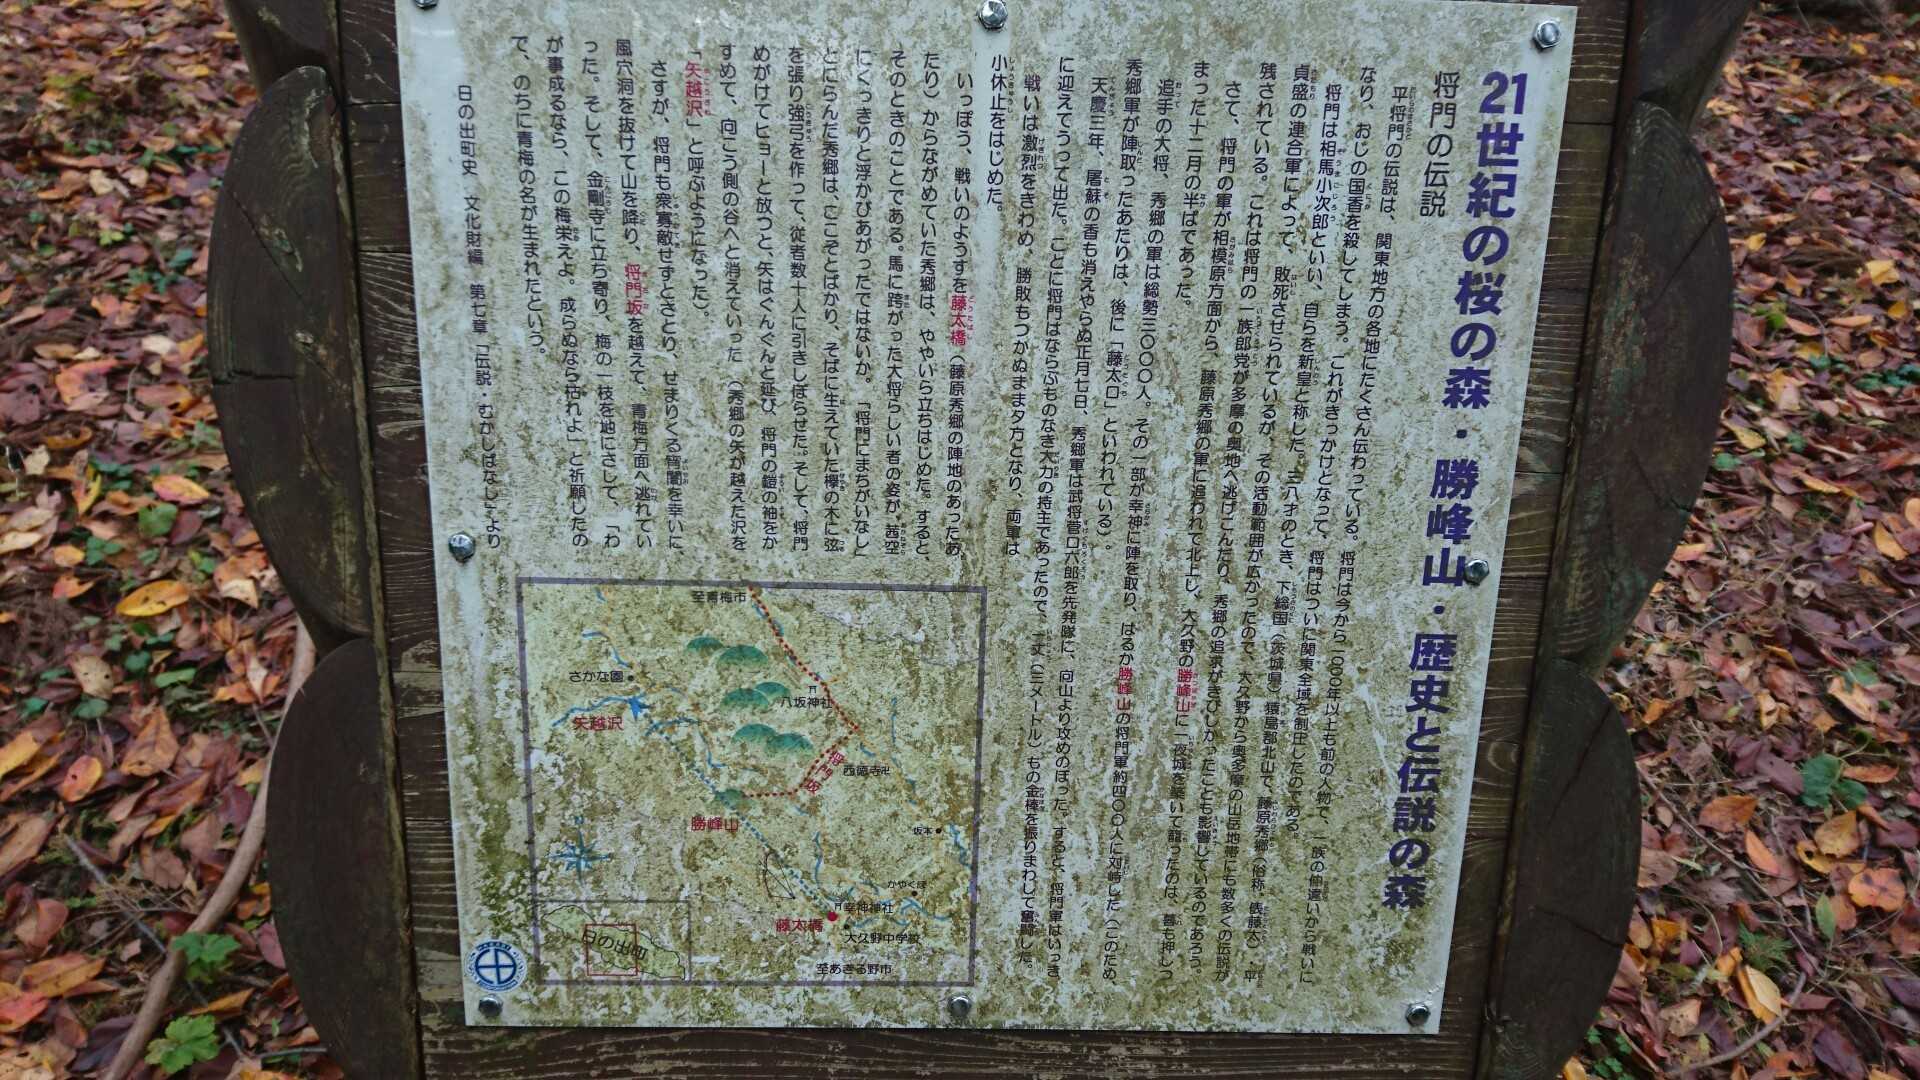 21世紀の桜の森・勝峰山・歴史と伝説の森
将門の伝説
平将門の伝説は、関東地方の各地にたくさん伝わっている。将門は今から一〇〇〇年以上も前の人物で、一族の仲違いから戦いに
なり、おじの国香を殺してしまう。これがきっかけとなって、将門はついに関東全域を制圧したのである。
将門は相馬小次郎といい、自らを新皇と称した。三八才のとき、下総国（茨城県）猿島郡北山で、藤原秀郷（俗称、俵藤太）・平
貞盛の連合軍によって、敗死させられているが、その活動範囲が広かったので、大久野から奥多摩の山岳地帯にも数多くの伝説が
残されている。これは将門の一族郎党が多摩の奥地へ逃げこんだり、秀郷の追求がきびしかったことも影響しているのであろう。
さて、将門の軍が相模原方面から、藤原秀郷の軍に追われて北上し、大久野の勝峰山に一夜城を築いて籠ったのは、暮も押しつ
まった十二月の半ばであった。
追手の大将、秀郷の軍は総勢三〇〇〇人。その一部が幸神に陣を取り、はるか勝峰山の将門軍約四〇〇人に対峙した（このため、
秀郷軍が陣取ったあたりは、後に「藤太口」といわれている）。
天慶三年、屠蘇の香も消えやらぬ正月七日、秀郷軍は武将菅口六郎を先発隊に、向山より攻めのぼった。すると、将門軍はいっき
に迎えてうって出た。ことに将門はならぶものなき大力の持主であったので、一丈（三メートル）もの金棒を振りまわして奮闘した。
戦いは激烈をきわめ、勝敗もつかぬまま夕方となり、両軍は
小休止をはじめた。
いっぽう、戦いのようすを藤太橋（藤原秀郷の陣地のあったあ
たり）からながめていた秀郷は、ややいら立ちはじめた。すると、
そのときのことである。馬に跨がった大将らしい者の姿が、茜空
にくっきりと浮かびあがったではないか。「将門にまちがいなし」
とにらんだ秀郷は、ここぞとばかり、そばに生えていた欅の木に弦
を張り強弓を作って、従者数十人に引きしぼらせた。そして、将門
めがけてヒョーと放つと、矢はぐんぐんと延び、将門の鎧の袖をか
すめて、向こう側の谷へと消えていった（秀郷の矢が越えた沢を
「矢越沢」と呼ぶようになった）。
さすが、将門も衆寡敵せずとさとり、せまりくる宵闇を幸いに、
風穴洞を抜けて山を降り、将門坂を越えて、青梅方面へ逃れてい
った。そして、金剛寺に立ち寄り、梅の一枝を地にさして、「わ
が事成るなら、この梅栄えよ。成らぬなら枯れよ」と祈願したの
で、のちに青梅の名が生まれたという。
日の出町史　文化財編　第七章「伝説・むかしばなし」より
至青梅市
さかな園
八坂神社
矢越沢
将門坂
西徳寺卍
勝峰山
坂本
かやくぼ
幸神神社
藤太橋
大久野中学校
日の出町
至あきる野市